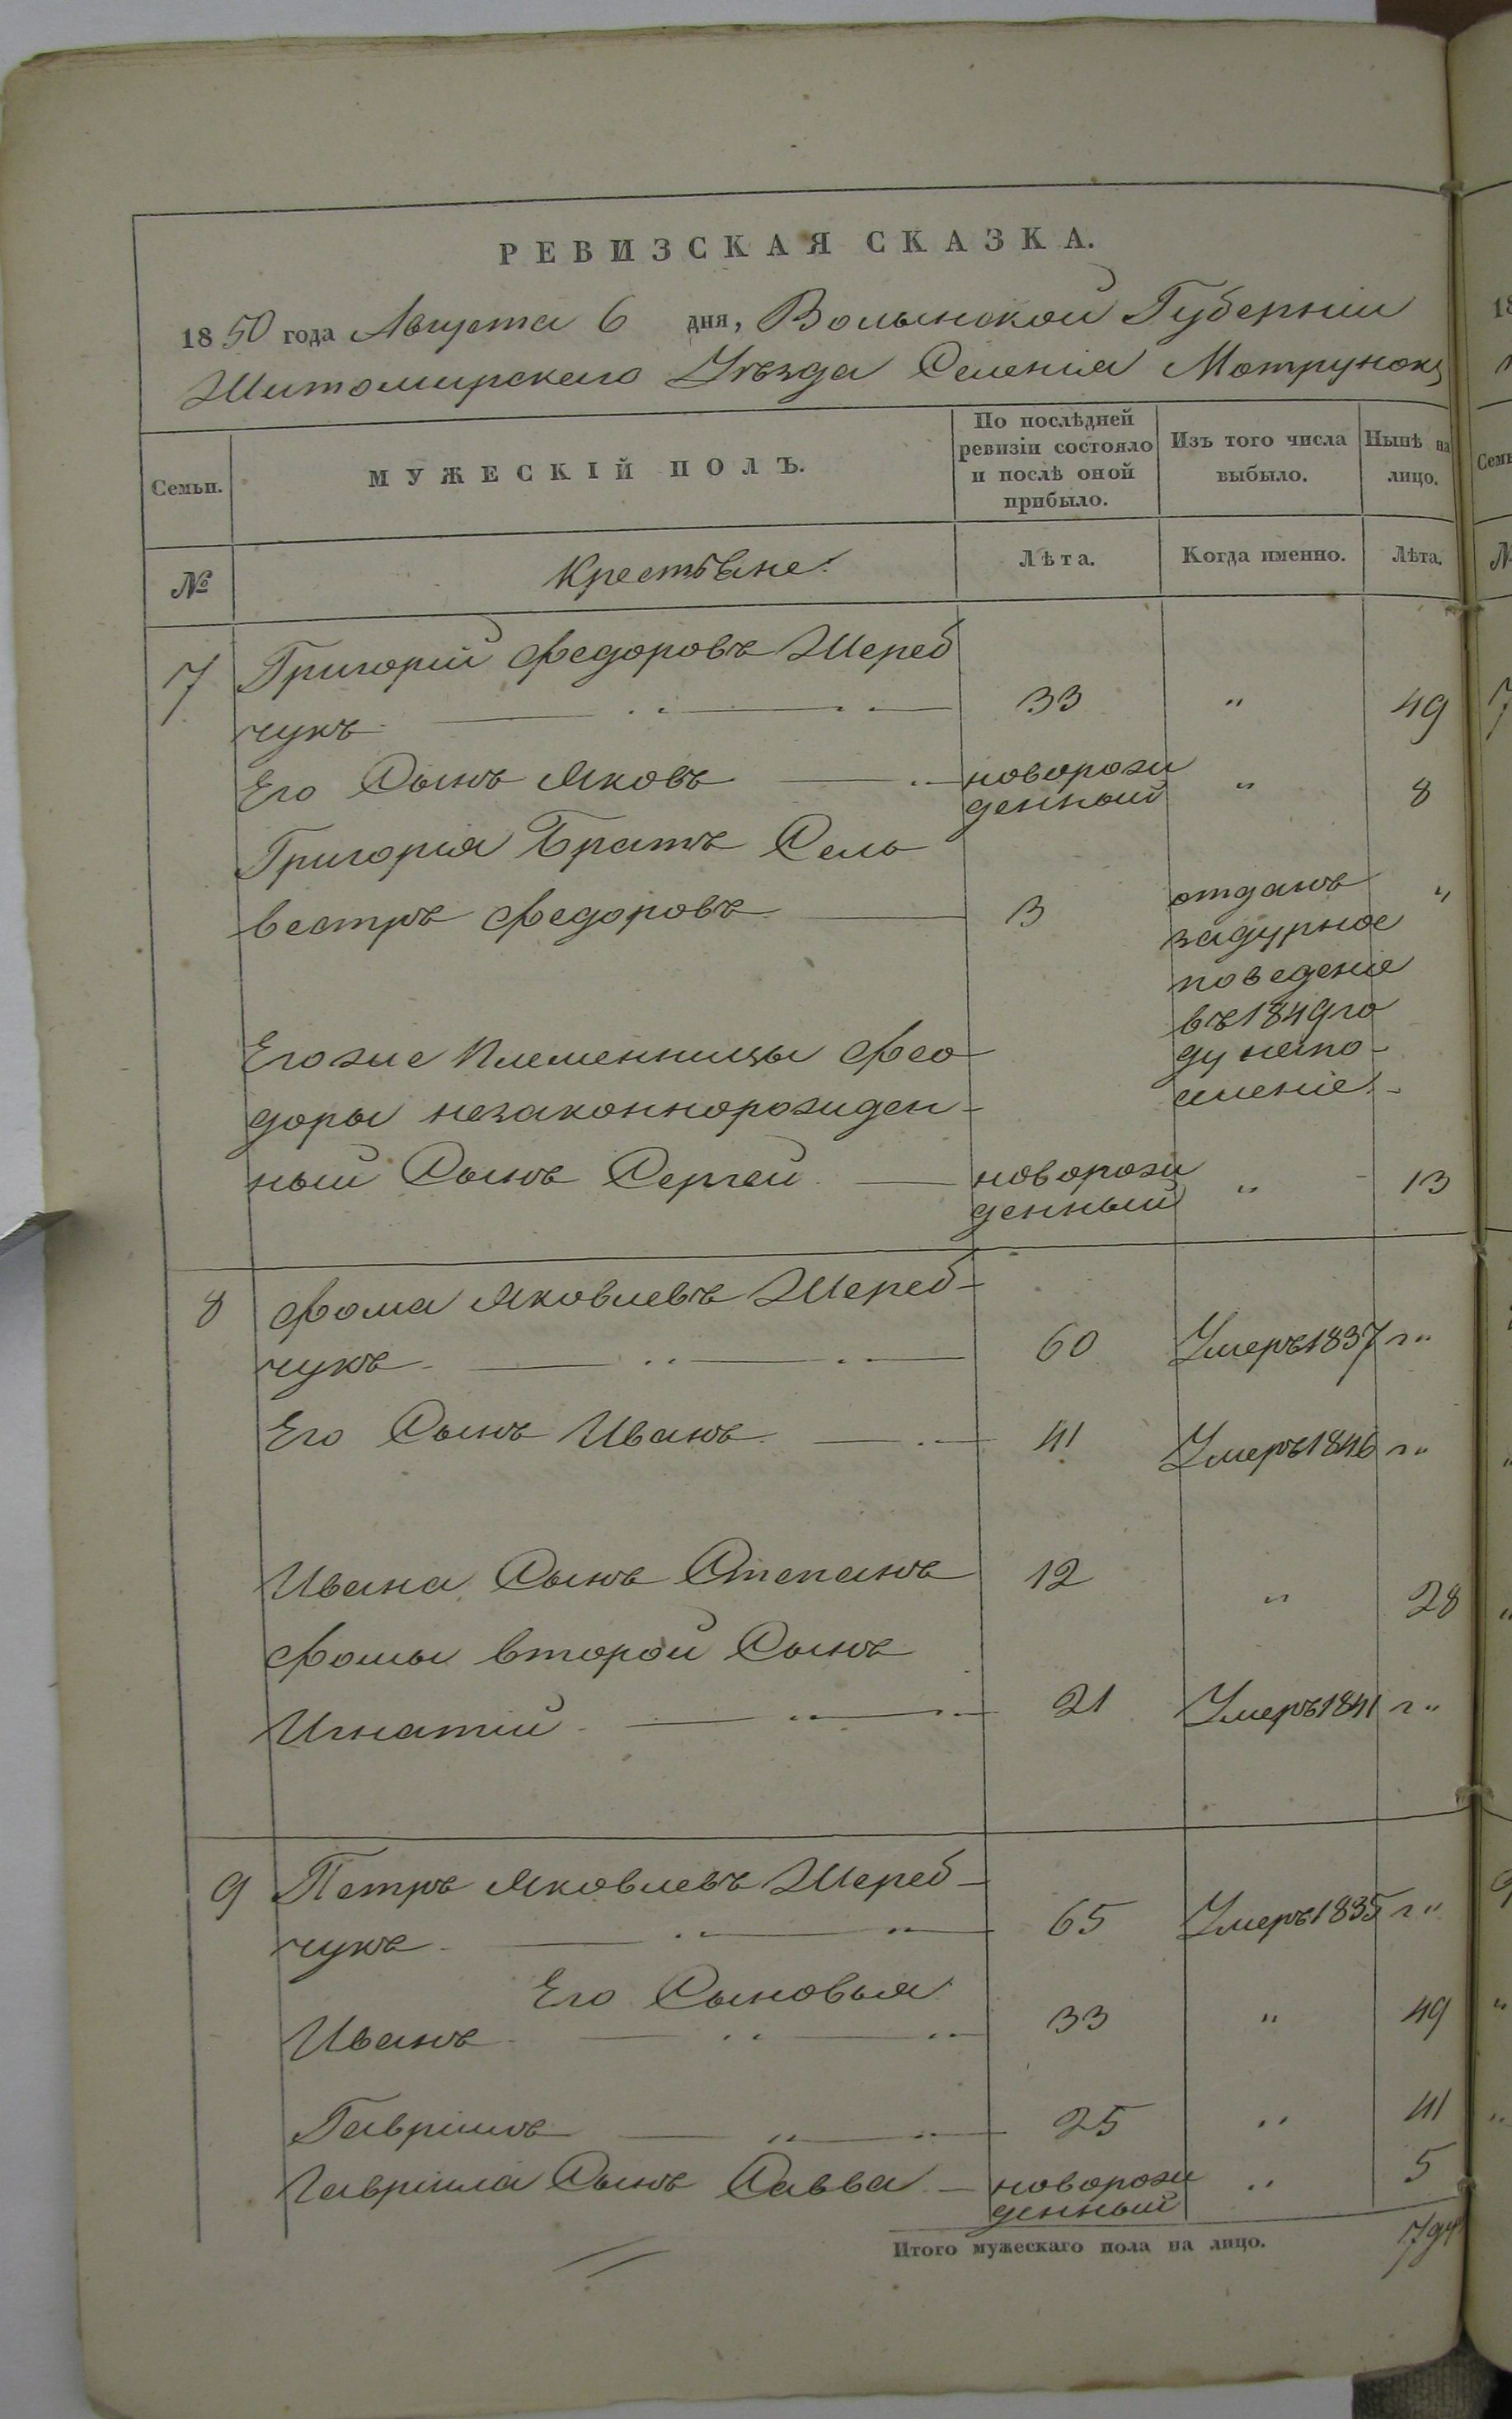 РЕВИЗСКАЯ СКАЗКА.
1850 года Августа 6 дня, Волынской Губерніи
Житомирскаго Уѣзда Селенія Мотрунокъ
Семьи. МУЖЕСКІЙ ПОЛЪ. По послѣдней ревизіи состояло и послѣ оной прибыло. Изъ того числа выбыло. Нынѣ на лицо.
№ Крестьяне. Лѣта. Когда именно. Лѣта.
7 Григорій Федоровъ Шереб
чукъ 33 " 49
Его Сынъ Яковъ новорож
денный " 8
Григорія Братъ Сель
вестръ Федоровъ 13 отданъ "
задурное
поведеніе
въ 1849 го
ду напо-
селеніе
Егоже Племенницы Фео
доры незаконнорожден-
ный Сынъ Сергей новорож
денный " 13
8 Фома Яковлевъ Шереб-
чукъ 60 Умеръ 1837 г "
Его Сынъ Иванъ 41 Умеръ 1846 г "
Ивана Сынъ Степанъ 12 " 28
Фомы второй Сынъ
Игнатій 21 Умеръ 1841 г "
9 Петръ Яковлевъ Шереб-
чукъ 65 Умеръ 1835 г "
Его Сыновья
Иванъ 33 " 49
Гавріилъ 25 " 41
Гавріила Сынъ Савва новорож
денный " 5
Итого мужескаго пола на лицо.